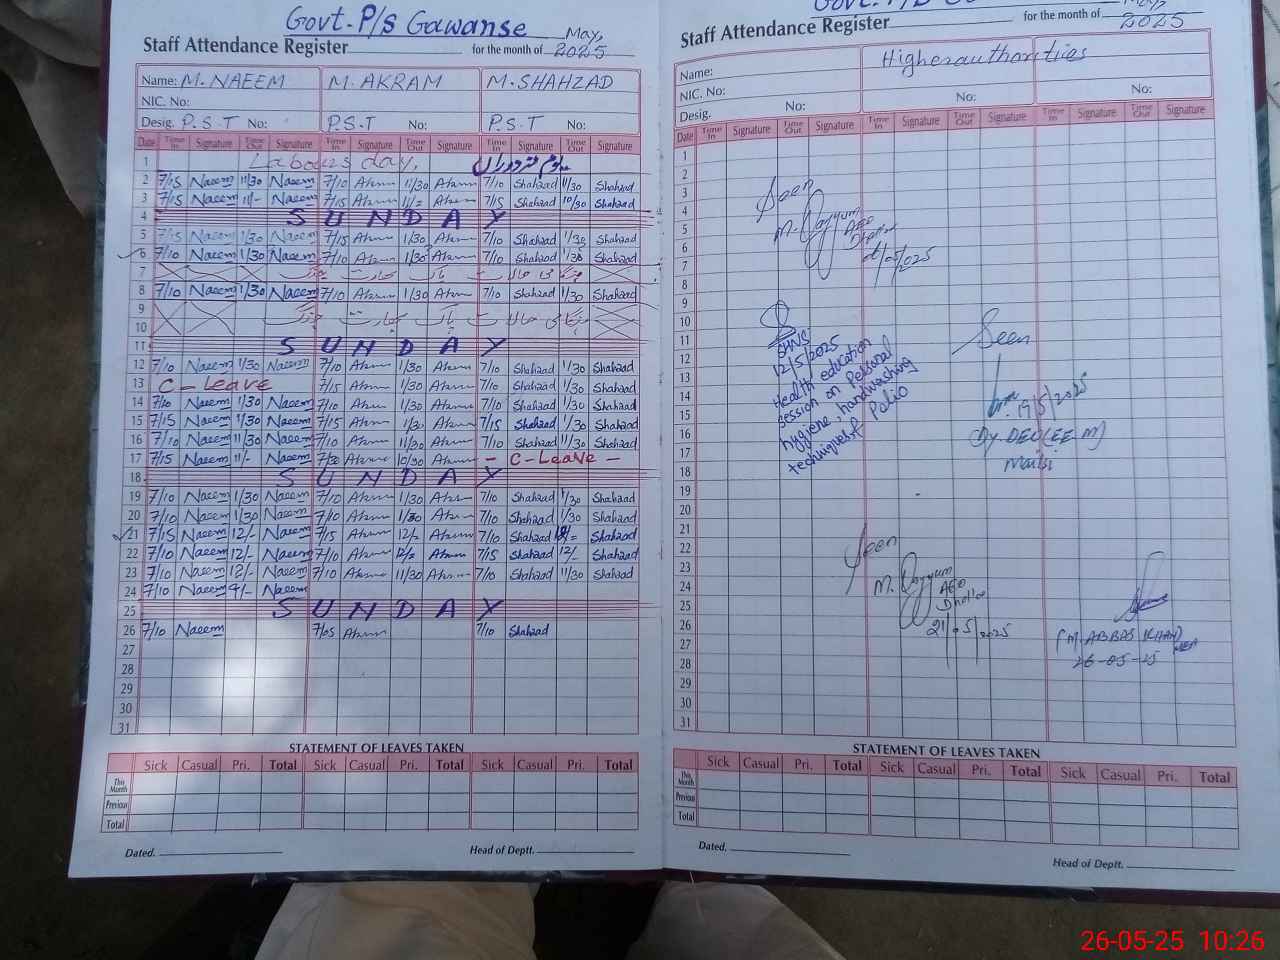 Govt. P/s Gawanse
Staff Attendance Register for the month of May, 2025
Name: M. NAEEM M. AKRAM M. SHAHZAD
NIC. No:
Desig. P.S.T No: P.S.T No: P.S.T No:
Date Time In Signature Time Out Signature Time In Signature Time Out Signature Time In Signature Time Out Signature
1 Labours day,
2 7/15 Naeem 11/30 Naeem 7/10 Akram 11/30 Akram 7/10 Shahzad 11/30 Shahzad
3 7/15 Naeem 11/- Naeem 7/15 Akram 11/= Akram 7/15 Shahzad 10/30 Shahzad
4 SUNDAY
5 7/15 Naeem 1/30 Naeem 7/15 Akram 1/30 Akram 7/10 Shahzad 1/30 Shahzad
6 7/10 Naeem 1/30 Naeem 7/10 Akram 1/30 Akram 7/10 Shahzad 1/30 Shahzad
7
8 7/10 Naeem 1/30 Naeem 7/10 Akram 1/30 Akram 7/10 Shahzad 1/30 Shahzad
9
10
11 SUNDAY
12 7/10 Naeem 1/30 Naeem 7/10 Akram 1/30 Akram 7/10 Shahzad 1/30 Shahzad
13 C-Leave 7/15 Akram 1/30 Akram 7/10 Shahzad 1/30 Shahzad
14 7/10 Naeem 1/30 Naeem 7/10 Akram 1/30 Akram 7/10 Shahzad 1/30 Shahzad
15 7/15 Naeem 1/30 Naeem 7/15 Akram 1/30 Akram 7/15 Shahzad 1/30 Shahzad
16 7/10 Naeem 11/30 Naeem 7/10 Akram 11/30 Akram 7/10 Shahzad 11/30 Shahzad
17 7/15 Naeem 11/- Naeem 7/30 Akram 10/30 Akram - C-Leave -
18 SUNDAY
19 7/10 Naeem 1/30 Naeem 7/10 Akram 1/30 Akram 7/10 Shahzad 1/30 Shahzad
20 7/10 Naeem 1/30 Naeem 7/10 Akram 1/30 Akram 7/10 Shahzad 1/30 Shahzad
21 7/15 Naeem 12/- Naeem 7/15 Akram 12/= Akram 7/10 Shahzad Shahzad
22 7/10 Naeem 12/- Naeem 7/10 Akram 12/= Akram 7/15 Shahzad 12/- Shahzad
23 7/10 Naeem 12/- Naeem 7/10 Akram 11/30 Akram 7/10 Shahzad 11/30 Shahzad
24 7/10 Naeem 9/- Naeem
25 SUNDAY
26 7/10 Naeem 7/05 Akram 7/10 Shahzad
27
28
29
30
31
STATEMENT OF LEAVES TAKEN
Sick Casual Pri. Total Sick Casual Pri. Total Sick Casual Pri. Total
This Month
Previous
Total
Dated. Head of Deptt.
Staff Attendance Register for the month of May, 2025
Name: Higher authorities
NIC. No:
Desig. No: No: No:
Date Time In Signature Time Out Signature Time In Signature Time Out Signature Time In Signature Time Out Signature
1
2
3
4
5
6
7
8
9
10
11
12
13
14
15
16
17
18
19
20
21
22
23
24
25
26
27
28
29
30
31
Seen
M. Qayyum
AEO
SHNS
12/5/2025
Health education
session on Personal
hygiene, handwashing
techniques & Polio
Seen
19/5/2025
Dy. DEO (EE.M)
Mailsi
Seen
M. Qayyum
AEO
21/05/2025
(M. ABBAS KHAN)
26-05-25
STATEMENT OF LEAVES TAKEN
Sick Casual Pri. Total Sick Casual Pri. Total Sick Casual Pri. Total
This Month
Previous
Total
Dated. Head of Deptt.
26-05-25 10:26